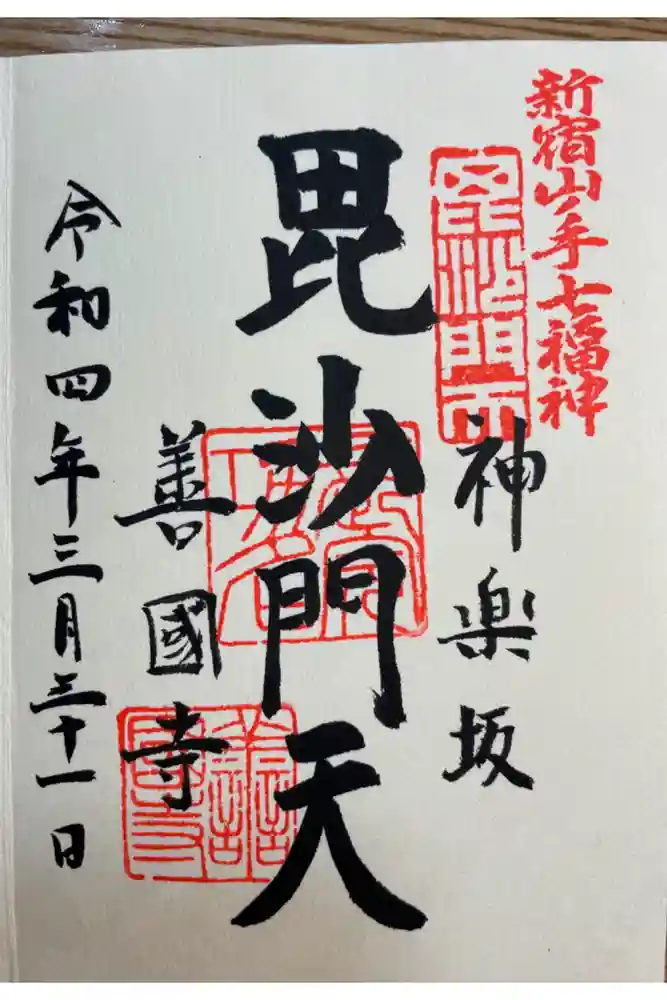 新宿山ノ手七福神
毘沙門天
神楽坂
毘沙門天
善國寺
令和四年三月三十一日